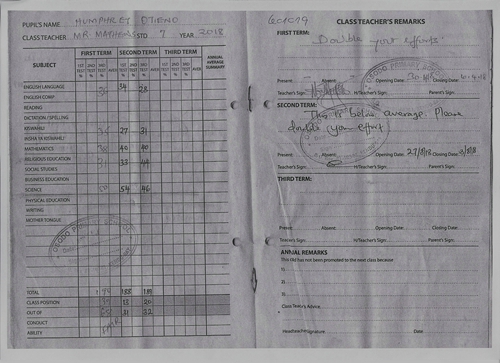 PUPIL'S NAME HUMPHREY OTIENO
CLASS TEACHER MR MATHEWS STD 7 YEAR 2018
SUBJECT FIRST TERM SECOND TERM THIRD TERM ANNUAL AVERAGE SUMMARY
1ST TEST % 2ND TEST % 3RD TEST % AVER 1ST TEST % 2ND TEST % 3RD TEST % AVER 1ST TEST % 2ND TEST % 3RD TEST % AVER
ENGLISH LANGUAGE 34 28
ENGLISH COMP.
READING
DICTATION / SPELLING
KISWAHILI 27 31
INSHA YA KISWAHILI
MATHEMATICS 40 40
RELIGIOUS EDUCATION 33 44
SOCIAL STUDIES
BUSINESS EDUCATION
SCIENCE 54 46
PHYSICAL EDUCATION
WRITING
MOTHER TONGUE
TOTAL 188 189
CLASS POSITION 13 20
OUT OF 31 32
CONDUCT
ABILITY
CLASS TEACHER'S REMARKS
FIRST TERM:
Double your efforts
Present: Absent: Opening Date: Closing Date:
Teacher's Sign: H/Teacher's Sign: Parent's Sign:
SECOND TERM:
This is below average. Please
double your effort
Present: Absent: Opening Date: 27/8/18 Closing Date: 3/8/18
Teacher's Sign: H/Teacher's Sign: Parent's Sign:
THIRD TERM:
Present: Absent: Opening Date: Closing Date:
Teacher's Sign: H/Teacher's Sign: Parent's Sign:
ANNUAL REMARKS
This child has not been promoted to the next class because
1)
2)
3)
Class Teacher's Advice
Headteacher Signature Date